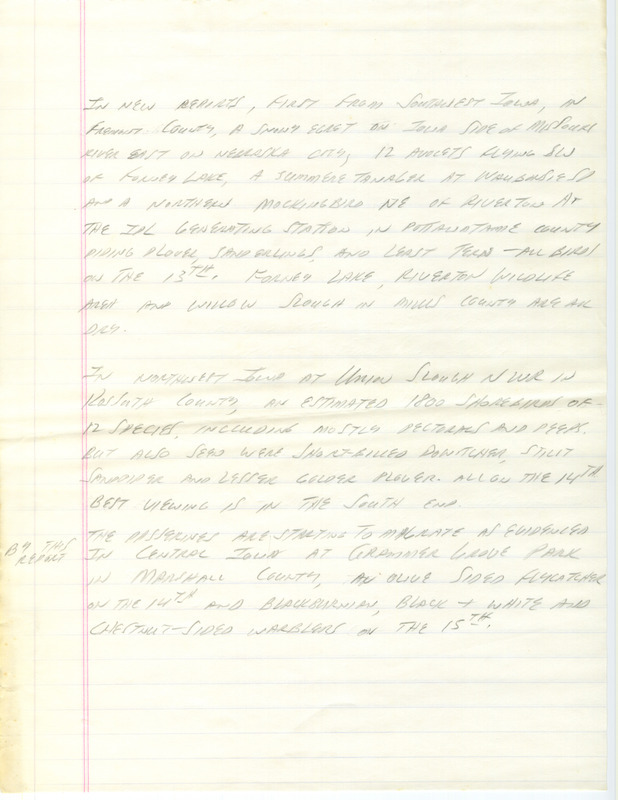 IN NEW REPORTS, FIRST FROM SOUTHWEST IOWA, IN
FREMONT COUNTY, A SNOWY EGRET ON IOWA SIDE OF MISSOURI
RIVER EAST ON NEBRASKA CITY, 12 AVOCETS FLYING SW
OF FORNEY LAKE, A SUMMER TANAGER AT WAUBONSIE SP
AND A NORTHERN MOCKINGBIRD NE OF RIVERTON AT
THE IPL GENERATING STATION IN POTTAWATTAMIE COUNTY
PIPING PLOVER, SANDERLINGS, AND LEAST TERN - ALL BIRDS
ON THE 13TH. FORNEY LAKE, RIVERTON WILDLIFE
AREA AND WILLOW SLOUGH IN MILLS COUNTY ARE ALL
DRY.
IN NORTHWEST IOWA AT UNION SLOUGH NWR IN
KOSSUTH COUNTY, AN ESTIMATED 1800 SHOREBIRDS OF
12 SPECIES, INCLUDING MOSTLY PECTORALS AND PEEPS.
BUT ALSO SEEN WERE SHORT-BILLED DOWITCHER, STILT
SANDPIPER AND LESSER GOLDEN PLOVER. ALL ON THE 14TH
BEST VIEWING IS IN THE SOUTH END.
THE PASSERINES ARE STARTING TO MIGRATE AS EVIDENCED
BY THIS
REPORT
IN CENTRAL IOWA AT GRAMMER GROVE PARK
IN MARSHALL COUNTY, AN OLIVE SIDED FLYCATCHER
ON THE 14TH AND BLACKBURNIAN, BLACK + WHITE AND
CHESTNUT-SIDED WARBLERS ON THE 15TH.